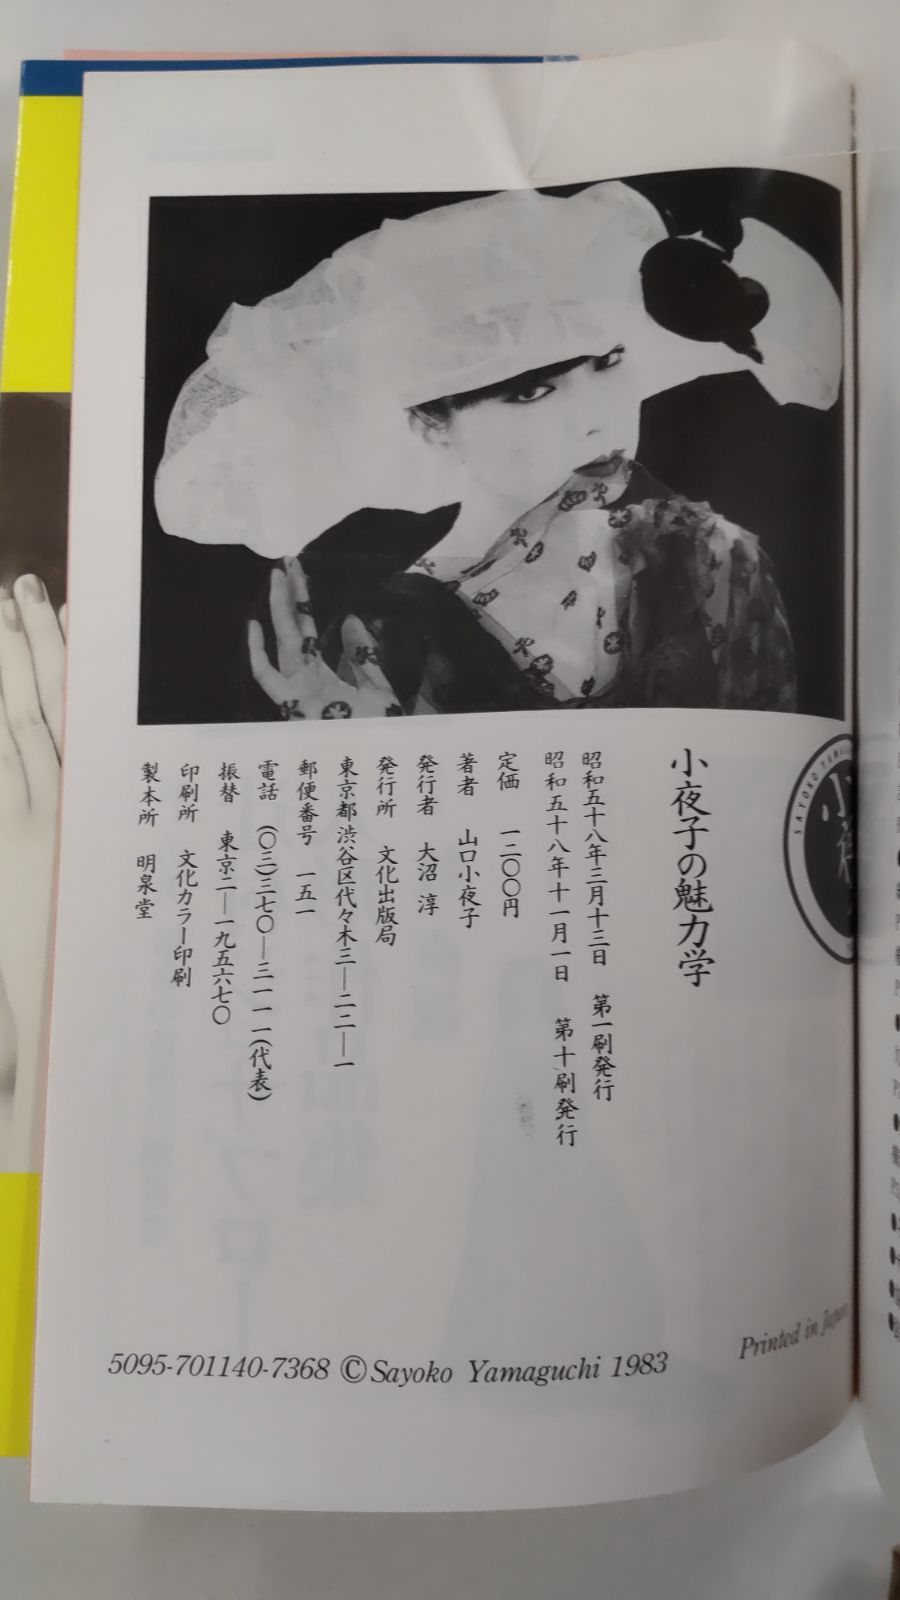 小夜子の魅力学
昭和五十八年三月十三日 第一刷発行
昭和五十八年十一月一日 第十刷発行
定価 一二〇〇円
著者 山口小夜子
発行者 大沼 淳
発行所 文化出版局
東京都渋谷区代々木三―二二―一
郵便番号 一五一
電話 (〇三)三七〇―三一一一(代表)
振替 東京二―一九五六七〇
印刷所 文化カラー印刷
製本所 明泉堂
5095-701140-7368 ©Sayoko Yamaguchi 1983
Printed in Japan